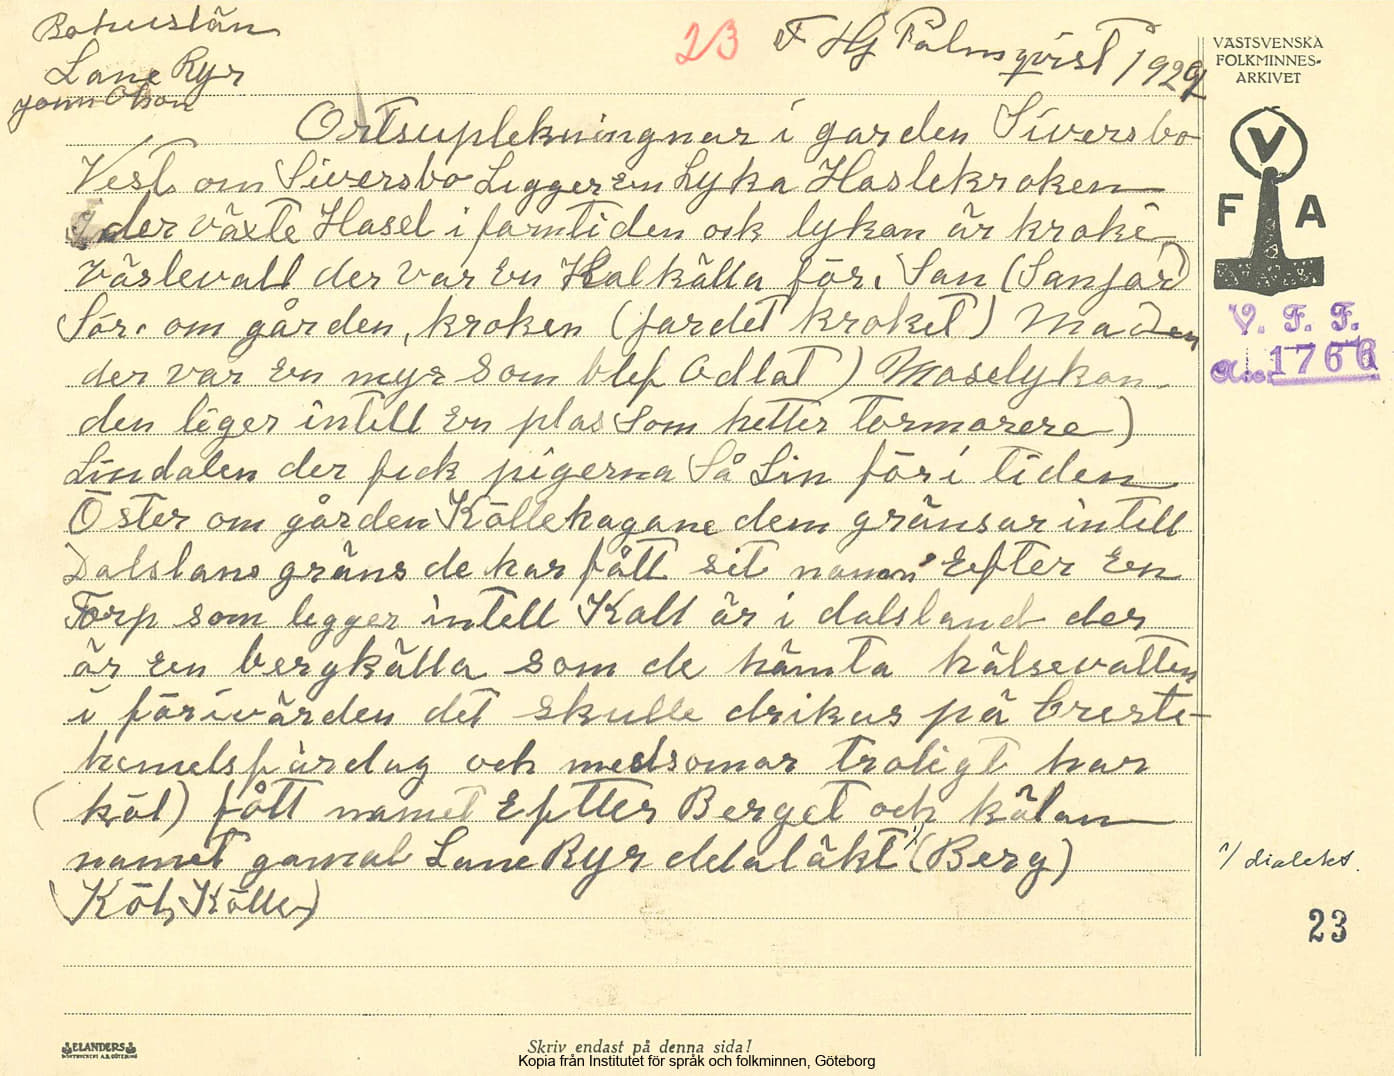 Bohuslän
Lane Ryr
John Olson
23
F Hg Palmqvist 1929
VÄSTSVENSKA
FOLKMINNES-
ARKIVET
V
F A
V. F. F.
Acc. 1766
Ortsuplekningnar i garden Siversbo
Vest om Siversbo Ligger en Lyka Haslekroken
der växte Hasel i forntiden ock lykan är krokë
Väslevall der var en Kalkälla för. San (Sanjor)
Sör. om gården, kroken (jardet kroket) Maden
der var en myr som blef Odlat) Moselykan
den liger intill en plas som hetter Tormarere)
Lindalen der fick pigerna Så Lin för i tiden
Öster om gården Köllekagane dem gränsar intill
Dalslans gräns de har fått sit namn Efter En
Torp som legger intill Kall är i dalsland der
är en bergkälla som de hämta hälsevatten
i förivärden det skulle drikus på Creste-
hemelsfärdag och medsomar troligt har
(köl) fått namet Eftter Berget och kölan
namet gamal Lane Ryr ddaläkt 1/ (Berg)
(Köl, Kölle)
1/ dialekt.
23
ELANDERS
BOKTRYCKERI A.B. GÖTEBORG
Skriv endast på denna sida!
Kopia från Institutet för språk och folkminnen, Göteborg